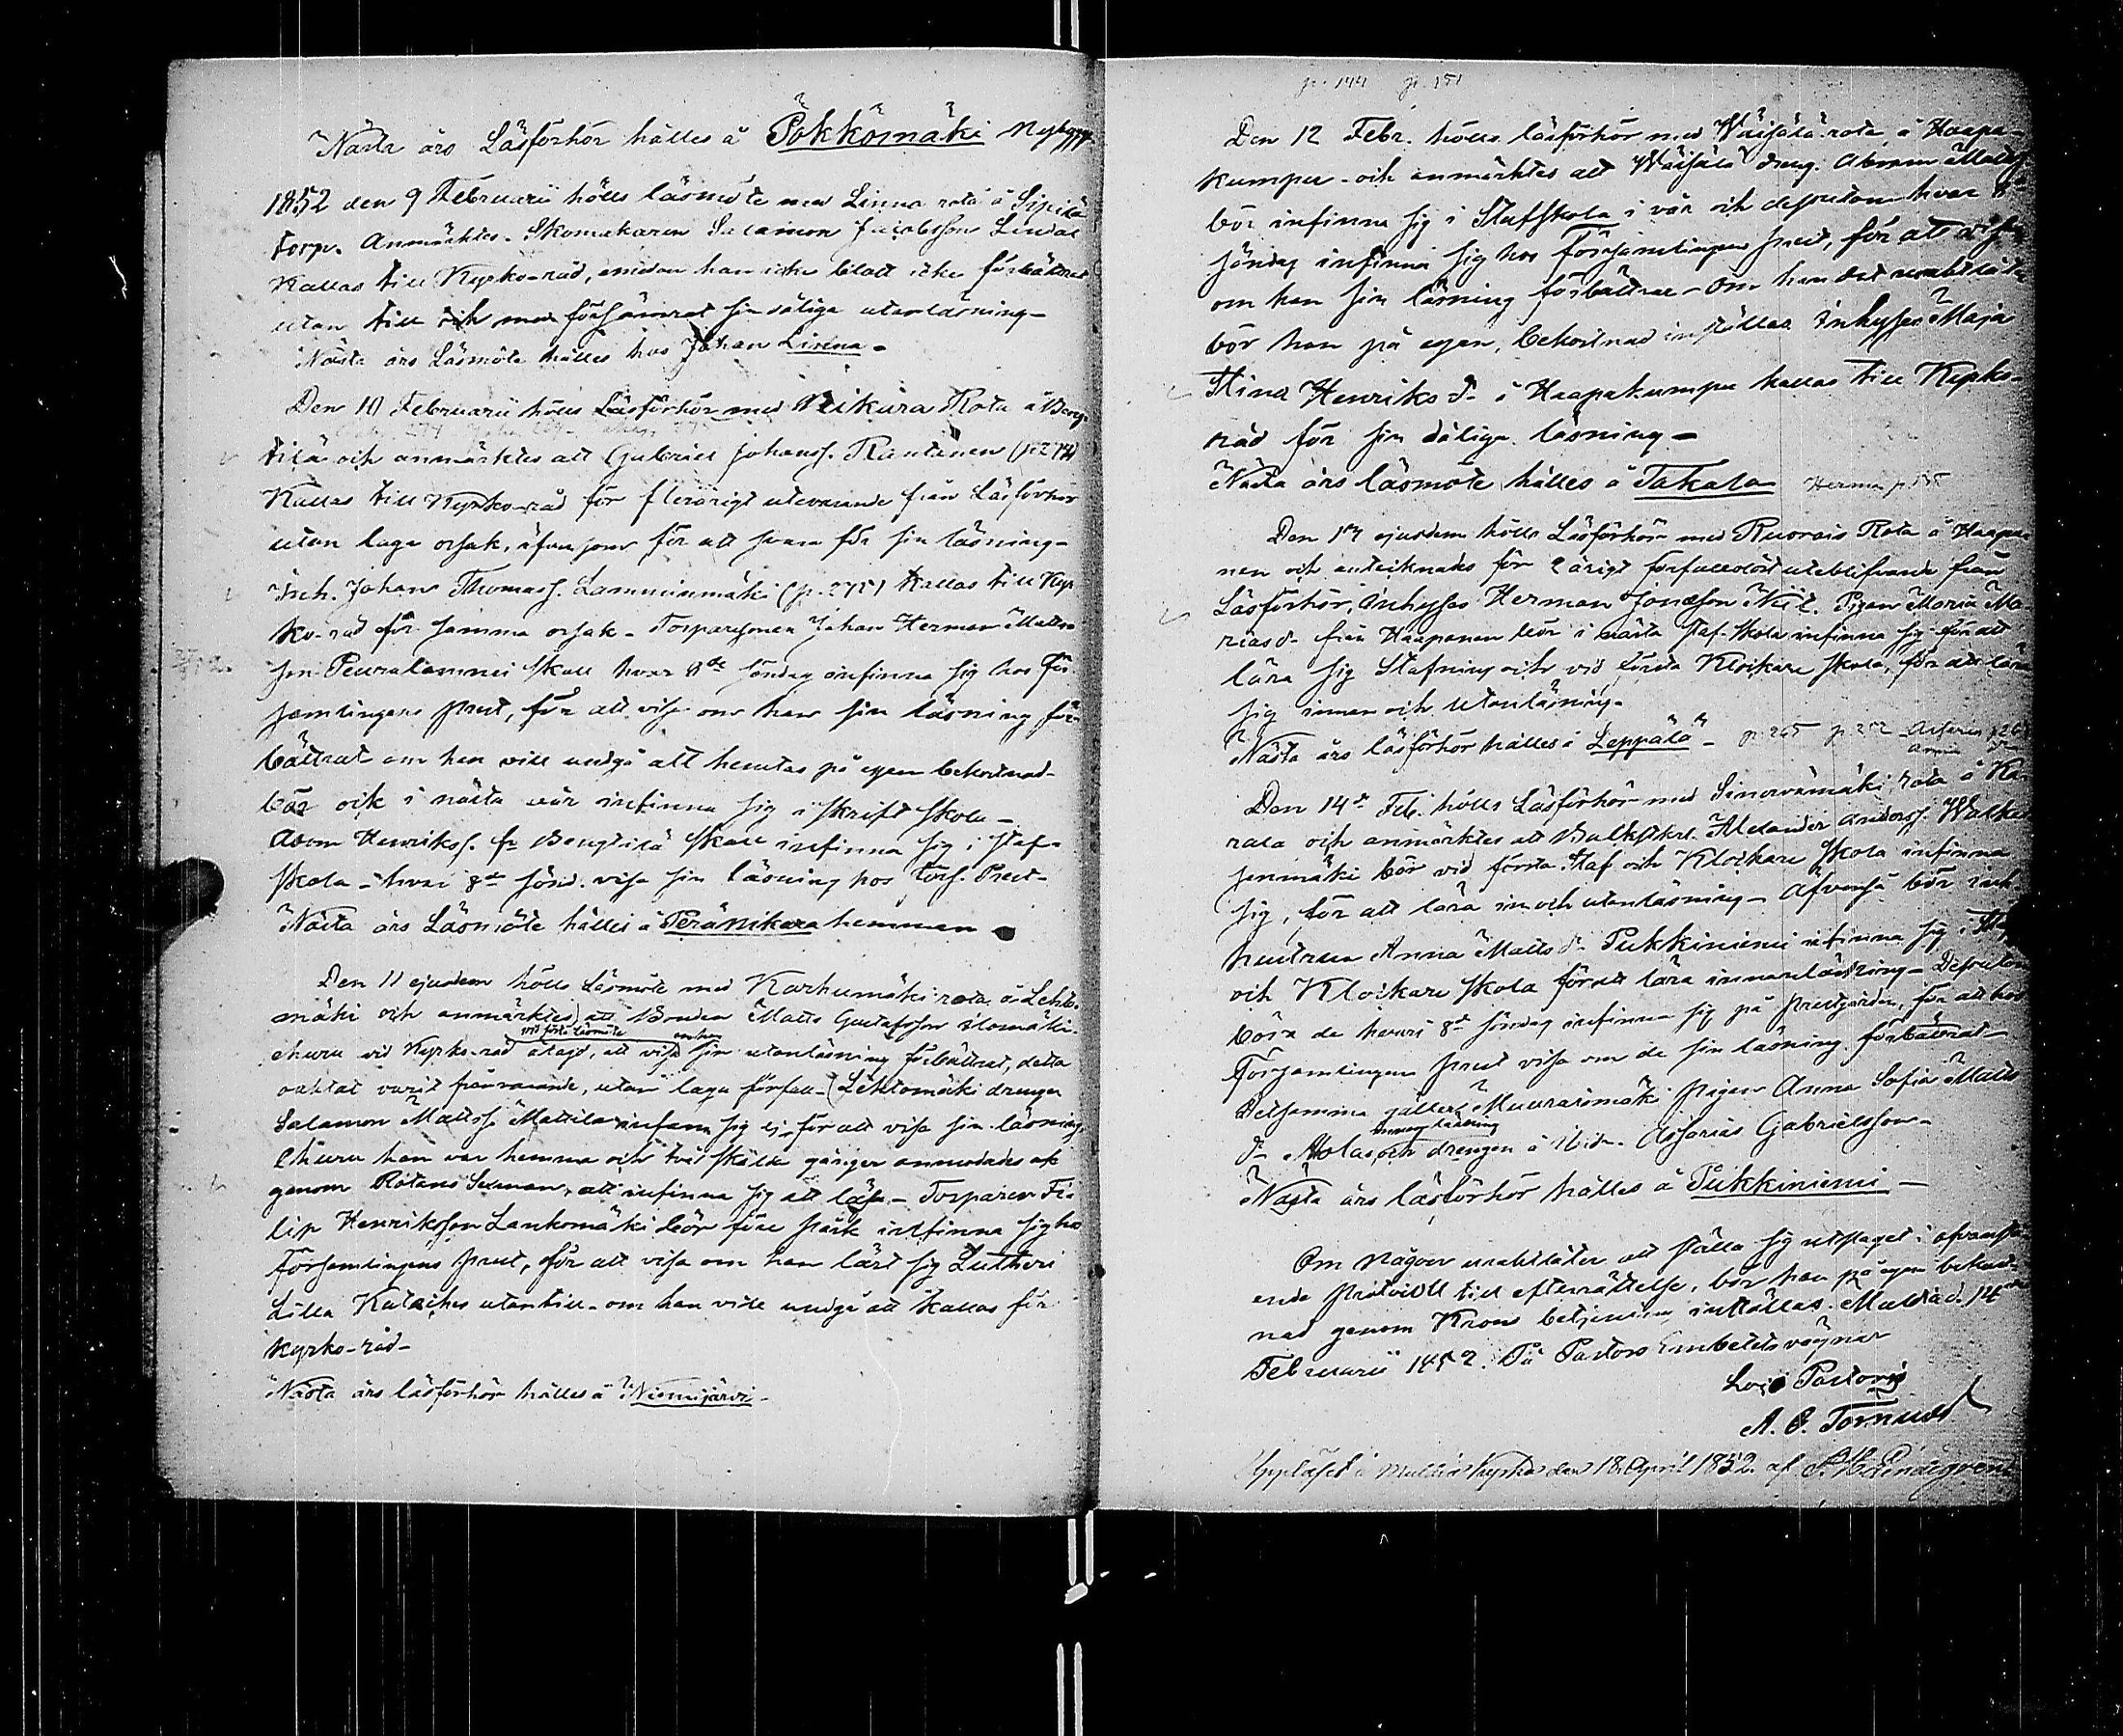 Nästa års Läsförhör hålles å Pökkömäki Nybygge
1852 den 9 Februarii hölls läsmöte med Linna rota å Sipilä
torp. Anmärktes. Skomakaren Salamon Jacobsson Lindal
Kallas till Kyrko-råd, emedan han icke blott icke förbättrat
utan till och med försämrat sin dåliga utanläsning-
Nästa års Läsmöte hålles hos Johan Linna-
Den 10 Februarii hölls Läsförhör med Nikara Rota å Beng-
tilä och anmärktes att Gabriel Johanss. Rantanen (p. 274)
Kallas till Kyrko-råd för flerårigt utevarande från Läsförhör
utan laga orsak, äfvensom för att svara för sin läsning-
Inh. Johan Thomass. Lamminmäki (p. 275) Kallas till Kyr-
ko-råd för samma orsak- Torparsonen Johan Herman Matts-
son Peuralammi skall hvar 8de söndag infinna sig hos För-
samlingens prest, för att visa om han sin läsning för-
bättrat om han vill undgå att hemtas på egen bekostnad-
bör ock i nästa vår infinna sig i Skriftskola-
Adam Henrikss. fr. Bengtilä skall infinna sig i Staf-
skola- hvar 8de sönd. visa sin läsning hos Förs. Prest-
Nästa års Läsmöte hålles å Peränikara hemman
Den 11 ejusdem hölls Läsmöte med Karhumäki rota å Lehto-
mäki och anmärktes att Bonden Matts Gustafsson Alomäki
vid förta läsmöte om han
ehuru vid Kyrko-råd ålagt, att visa sin utanläsning förbättrat, detta
oaktat varit frånvarande, utan laga förfall- Lehtomäki drengen
Salamon Mattss. Mattila infann sig ej för att visa sin läsning
ehuru han var hemma och två skilda gånger anmodades af
genom Rotans Sexman, att infinna sig att läsa- Torparen Fi-
lip Henriksson Laukomäki bör före påsk infinna sig hos
Församlingens prest, för att visa om han lärt sig Lutheri
Lilla Kateches utantill- om han vill undgå att kallas för
kyrko-råd-
Nästa års läsförhör hålles å Niemijärvi-
p. 144 p. 151
Den 12 Febr. hölls läsförhör med Wäisälä rota å Haapa-
kumpu- och anmärktes att Wäisälä dreng. Abram Matts
bör infinna sig i Stafskola i vår och dessutom hvar 8de
söndag infinna sig hos Församlingens prest, för att visa
om han sin läsning förbättrar- Om han det uraktlåter
bör han på egen bekostnad inställas. Inhyses Maja
Stina Henriks d- i Haapakumpu kallas till Kyrko-
råd för sin dåliga läsning-
Nästa års läsmöte hålles å Takala Herman p. 155
Den 13 ejusdem hölls Läsförhör med Ruorais Rota å Haapa-
nen och antecknades för 2 årigt förfallolöst uteblifvande från
Läsförhör, Inhyses Herman Jonasson Niil. Pigan Maria Ma-
riasd- från Haapanen bör i nästa Staf-skola infinna sig för att
lära sig Stafning och vid första Klockare skola, för att lära
sig innan och Utanläsning.
Nästa års läsförhör hålles å Leppälä- p. 265 p. 252 Assarias p. 261
Anna
Den 14de Feb. hölls Läsförhör med Sinervämäki rota å Ka-
rala och anmärktes att Backstkrl. Alexander Anderss. Walka-
senmäki bör vid första Staf och Klockare skola infinna
sig, för att lära in och utanläsning- Äfvenså bör inh.
hustrun Anna Matts d- Pukkiniemi infinna sig i Staf
och Klockare skola för att lära innanläsning- Dessutom
böra de hvar 8de söndag infinna sig på prestgården, för att hos
Församlingens prest visa om de sin läsning förbättrat-
Detsamma gäller Muuraismäki pigan Anna Sofia Matts
innanläsning
d- Aholas, och drengen å Uid- Assarias Gabrielsson-
Nästa års läsförhör hålles å Pukkiniemi-
Om någon uraktlåter att ställa sig utslaget i ofvanstå-
ende Protocoll till efterrättelse, bör han på egen bekost-
nad genom Krono betjening inställas. Multia d. 14de
Februarii 1852. På Pastors Embetets vägnar
Loco Pastoris
A. O. Törnudd
Uppläset i Multia kyrka den 18 April 1852 af